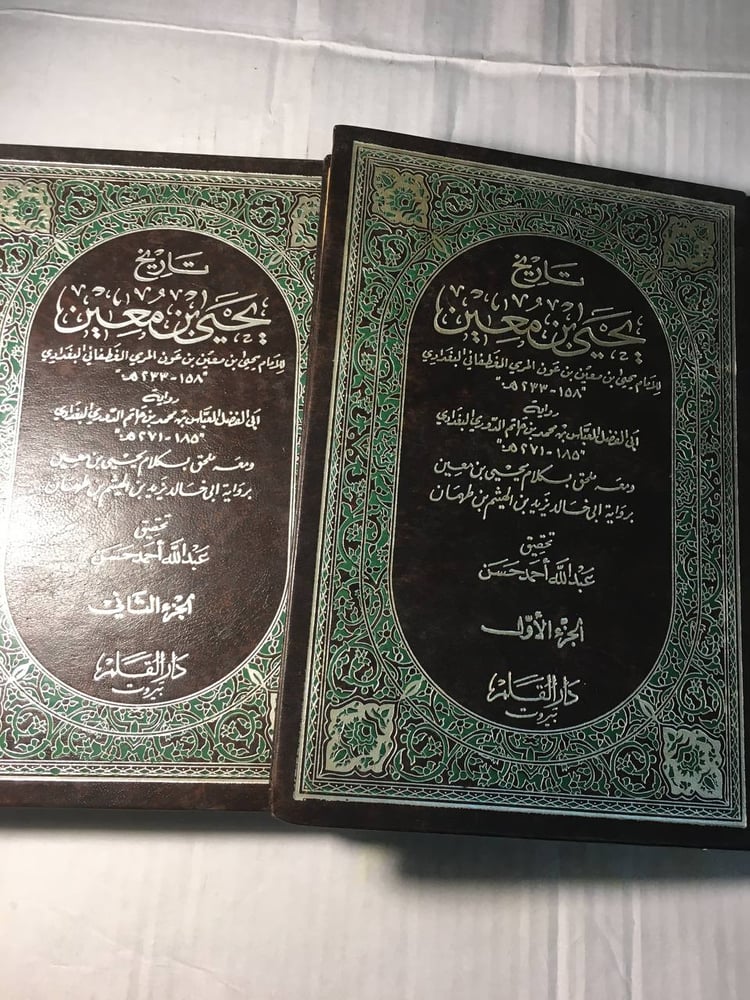 تاريخ
يحيى بن معين
للإمام يحيى ابن معين بن عون المري الغطفاني البغدادي
"١٥٨-٢٣٣ هـ"
رواية
أبي الفضل العباس بن محمد بن حاتم الدوري البغدادي
"١٨٥-٢٧١ هـ"
ومعه ملحق بكلام يحيى بن معين
برواية ابي خالد يزيد بن الهيثم بن طهمان
تحقيق
عبد الله أحمد حسن
الجزء الأول
دار القلم
بيروت
تاريخ
يحيى بن معين
للإمام يحيى ابن معين بن عون المري الغطفاني البغدادي
"١٥٨-٢٣٣ هـ"
رواية
أبي الفضل العباس بن محمد بن حاتم الدوري البغدادي
"١٨٥-٢٧١ هـ"
ومعه ملحق بكلام يحيى بن معين
برواية ابي خالد يزيد بن الهيثم بن طهمان
تحقيق
عبد الله أحمد حسن
الجزء الثاني
دار القلم
بيروت